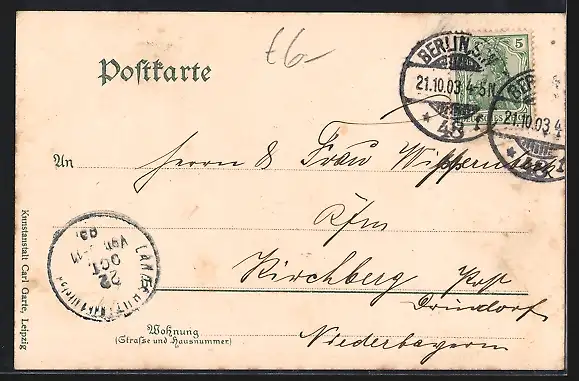 £6-
Postkarte
5
BERLIN S.W.
21.10.03 4-5N
* 48
BERLIN
21.10.03 4
An
Herrn & Frau
Kfm
Kirchberg Post
Niederbayern
22
OCT
Wohnung
(Straße und Hausnummer)
Kunstanstalt Carl Garte, Leipzig